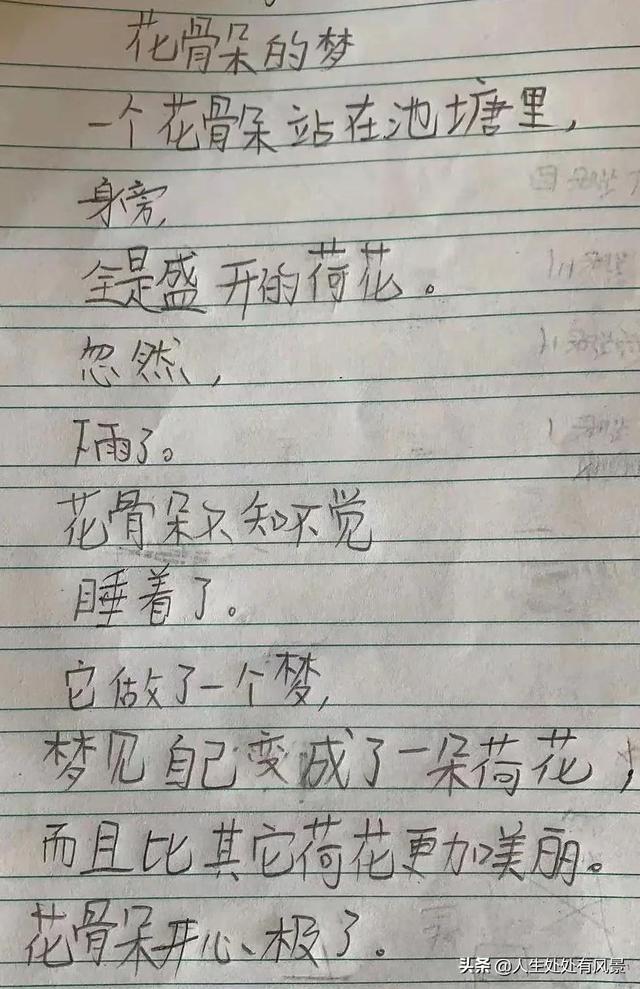 花骨朵的梦
一个花骨朵站在池塘里，
身旁，
全是盛开的荷花。
忽然，
下雨了。
花骨朵不知不觉
睡着了。
它做了一个梦，
梦见自己变成了一朵荷花，
而且比其它荷花更加美丽。
花骨朵开心极了。
头条 @人生处处有风景